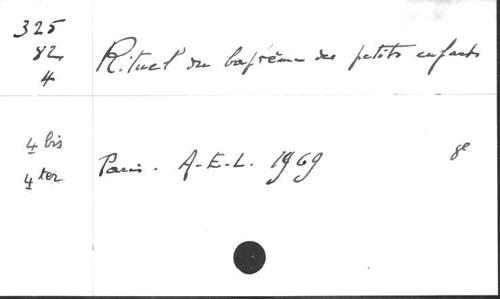 325
82
4
Rituel du baptême des petits enfants
4 bis
4 ter
Paris. A-E-L. 1969
8°